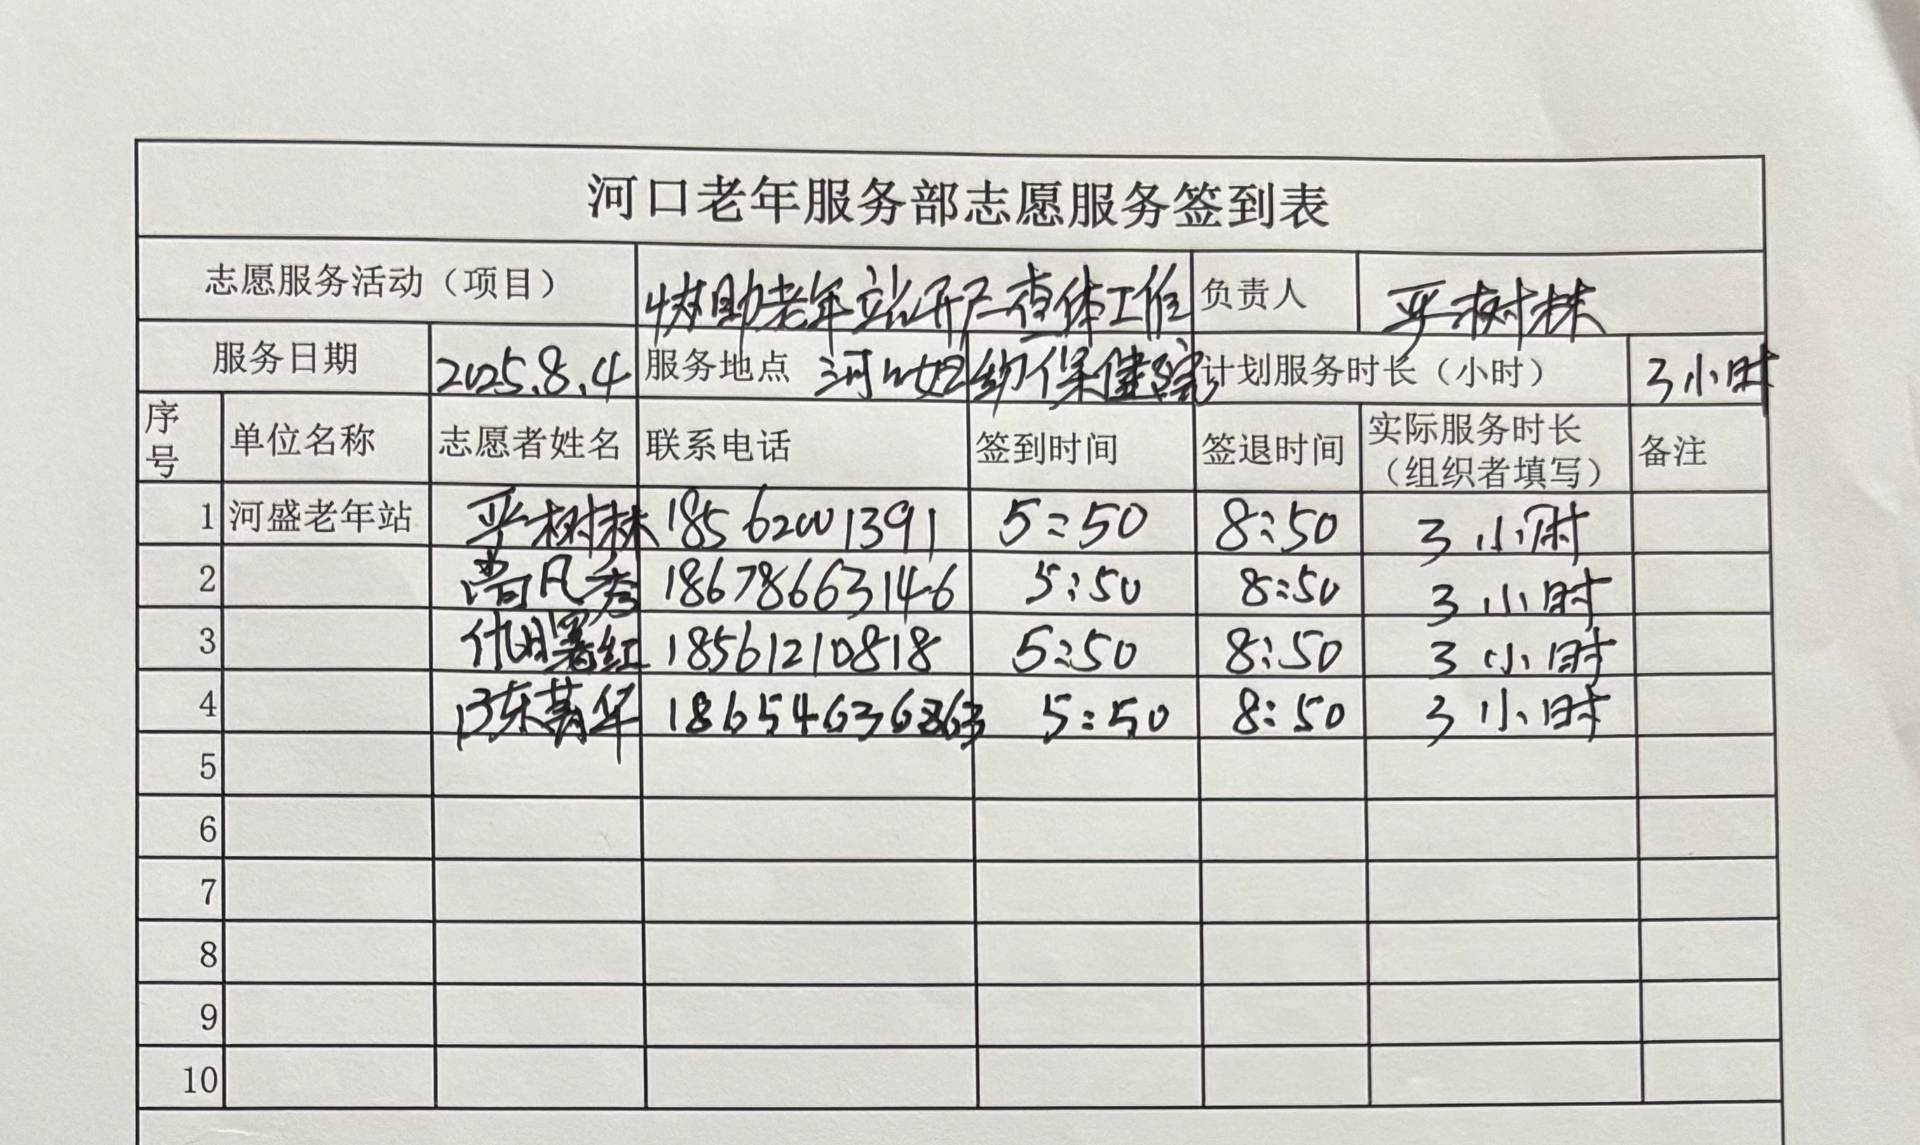 河口老年服务部志愿服务签到表
志愿服务活动（项目） 协助老年站开户查体工作 负责人 严树林
服务日期 2025.8.4 服务地点 河口妇幼保健院 计划服务时长（小时） 3小时
序号 单位名称 志愿者姓名 联系电话 签到时间 签退时间 实际服务时长（组织者填写） 备注
1 河盛老年站 严树林 18562001391 5:50 8:50 3小时
2 尚凡秀 18678663146 5:50 8:50 3小时
3 红 18561210818 5:50 8:50 3小时
4 陈菁华 5:50 8:50 3小时
5
6
7
8
9
10